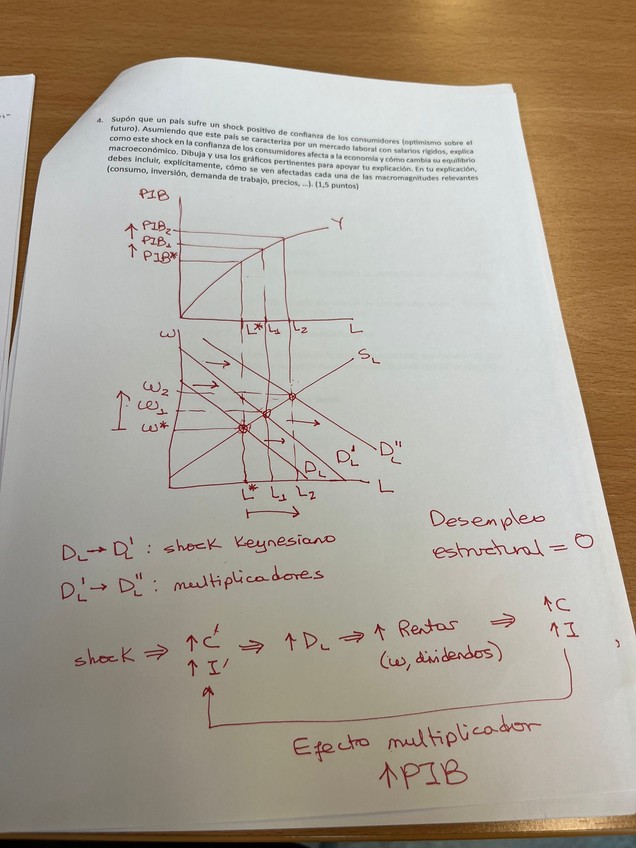 4. Supón que un país sufre un shock positivo de confianza de los consumidores (optimismo sobre el
futuro). Asumiendo que este país se caracteriza por un mercado laboral con salarios rígidos, explica
como este shock en la confianza de los consumidores afecta a la economía y cómo cambia su equilibrio
macroeconómico. Dibuja y usa los gráficos pertinentes para apoyar tu explicación. En tu explicación,
debes incluir, explícitamente, cómo se ven afectadas cada una de las macromagnitudes relevantes
(consumo, inversión, demanda de trabajo, precios, ...). (1,5 puntos)
PIB
Y
↑ PIB₂
PIB₁
↑ PIB*
L* L₁ L₂ L
ω
S_L
ω₂
↑ ω₁
ω*
D_L D_L' D_L''
L* L₁ L₂ L
Desempleo
estructural = 0
D_L → D_L' : shock Keynesiano
D_L' → D_L'' : multiplicadores
shock ⇒ ↑ C' ⇒ ↑ D_L ⇒ ↑ Rentas ⇒ ↑ C
↑ I' (ω, dividendos) ↑ I
Efecto multiplicador
↑ PIB